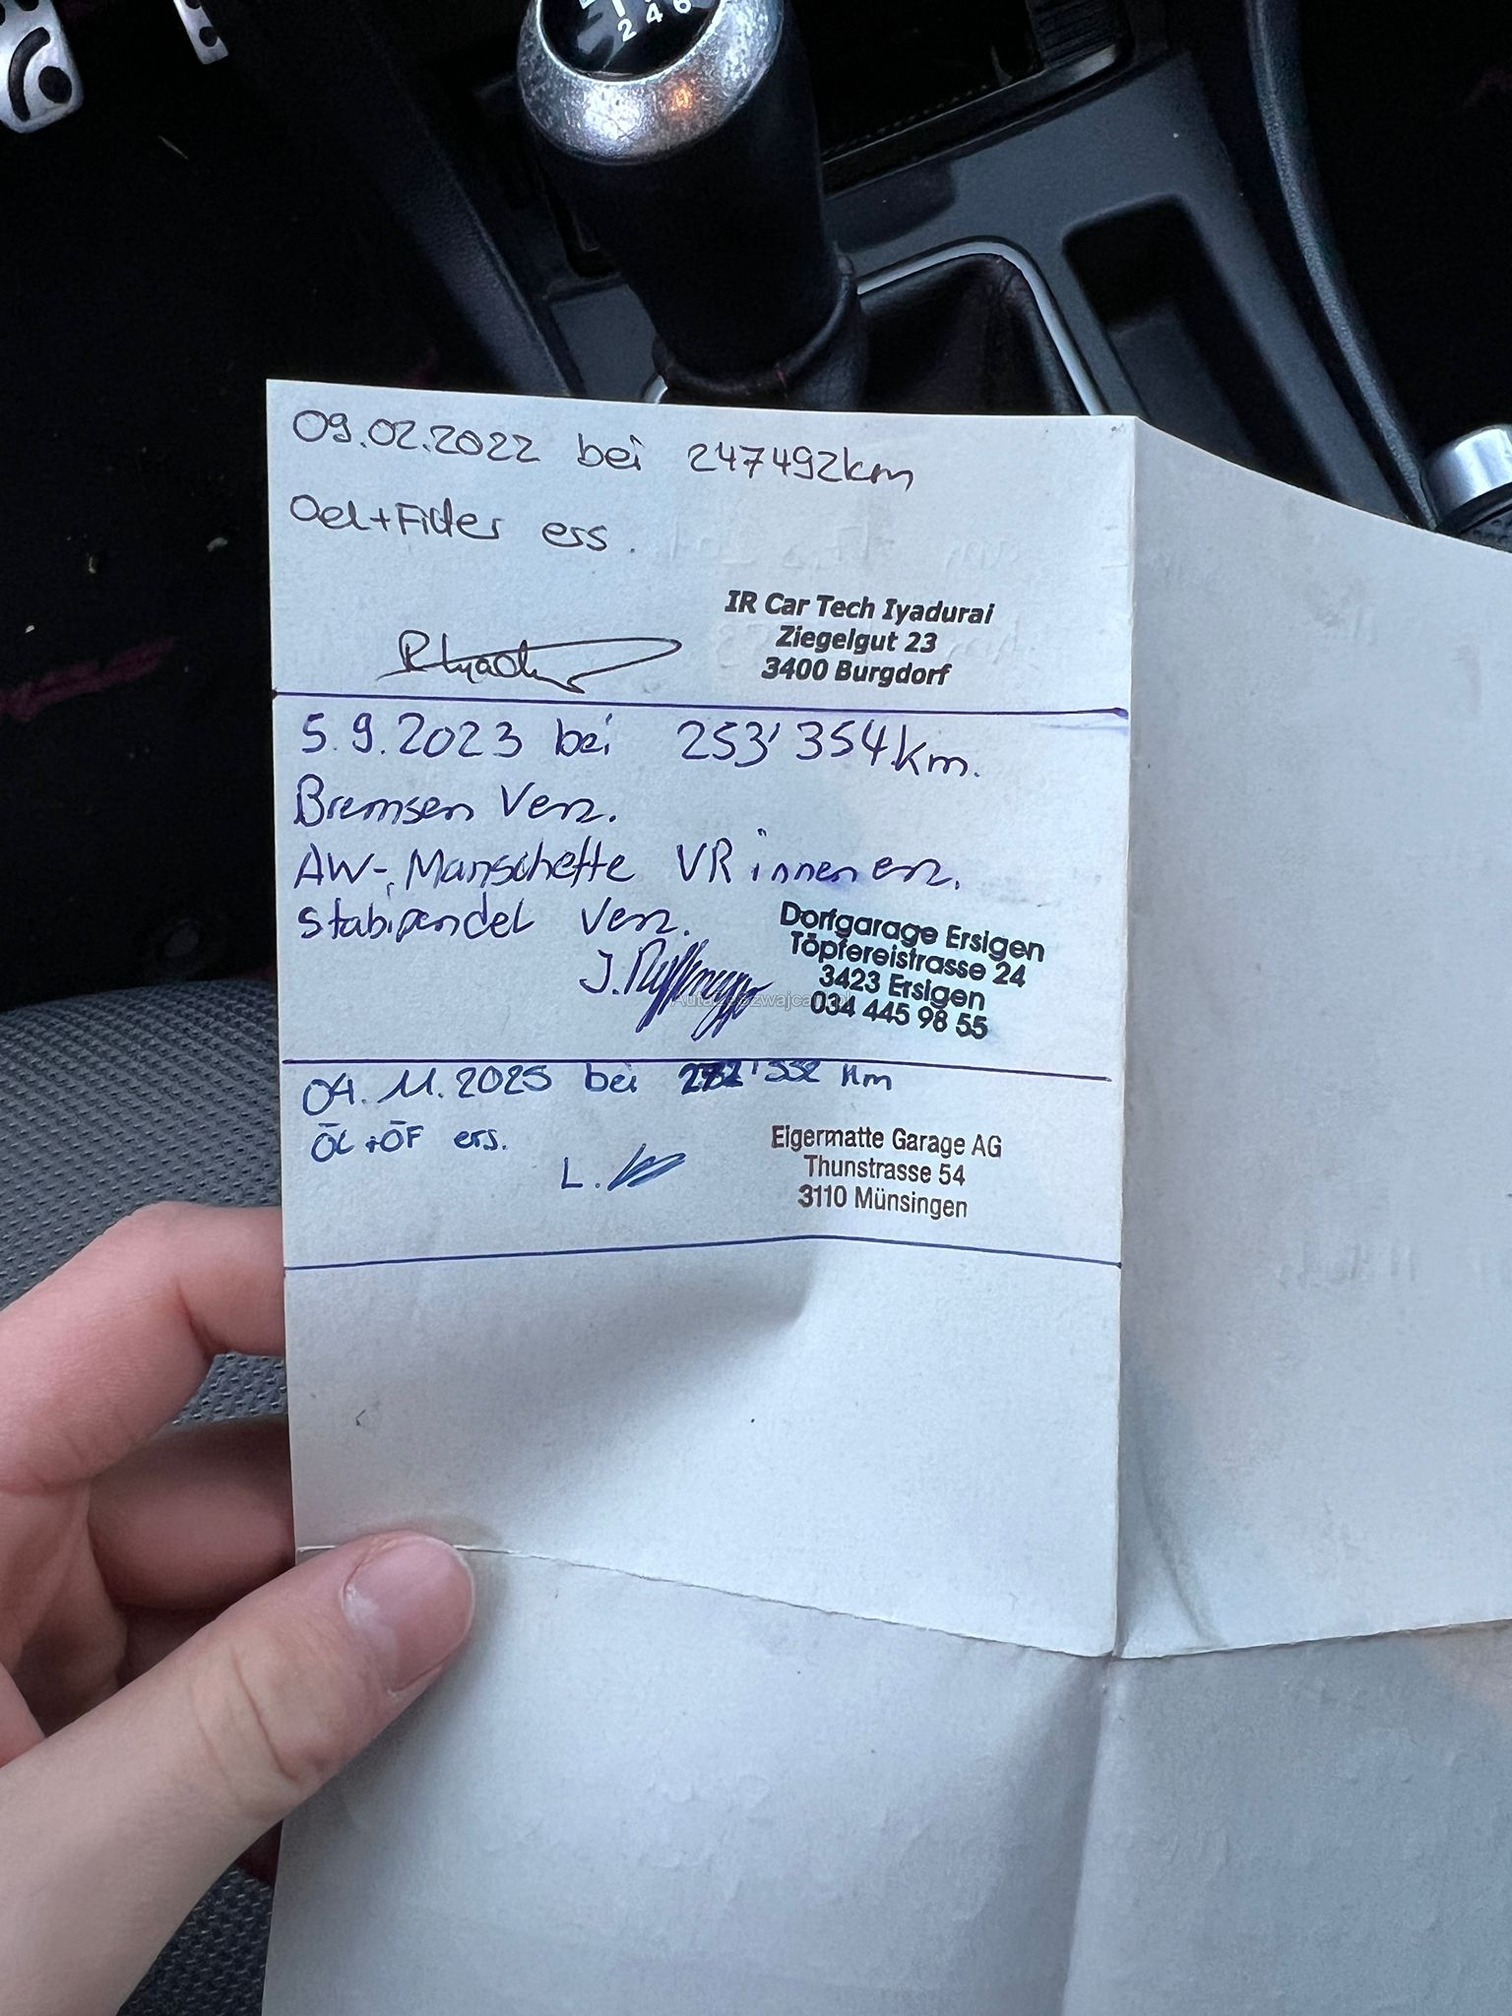 2 4 6
09.02.2022 bei 247492km
Oel+Filter ers.
IR Car Tech Iyadurai
Ziegelgut 23
3400 Burgdorf
5.9.2023 bei 253'354km.
Bremsen Vorn.
AW-Manschette VR innen ern.
Stabipendel Vorn.
J.
Dorfgarage Ersigen
Töpfereistrasse 24
3423 Ersigen
034 445 98 55
04.11.2025 bei Km
ÖL+ÖF ers.
L.
Eigermatte Garage AG
Thunstrasse 54
3110 Münsingen